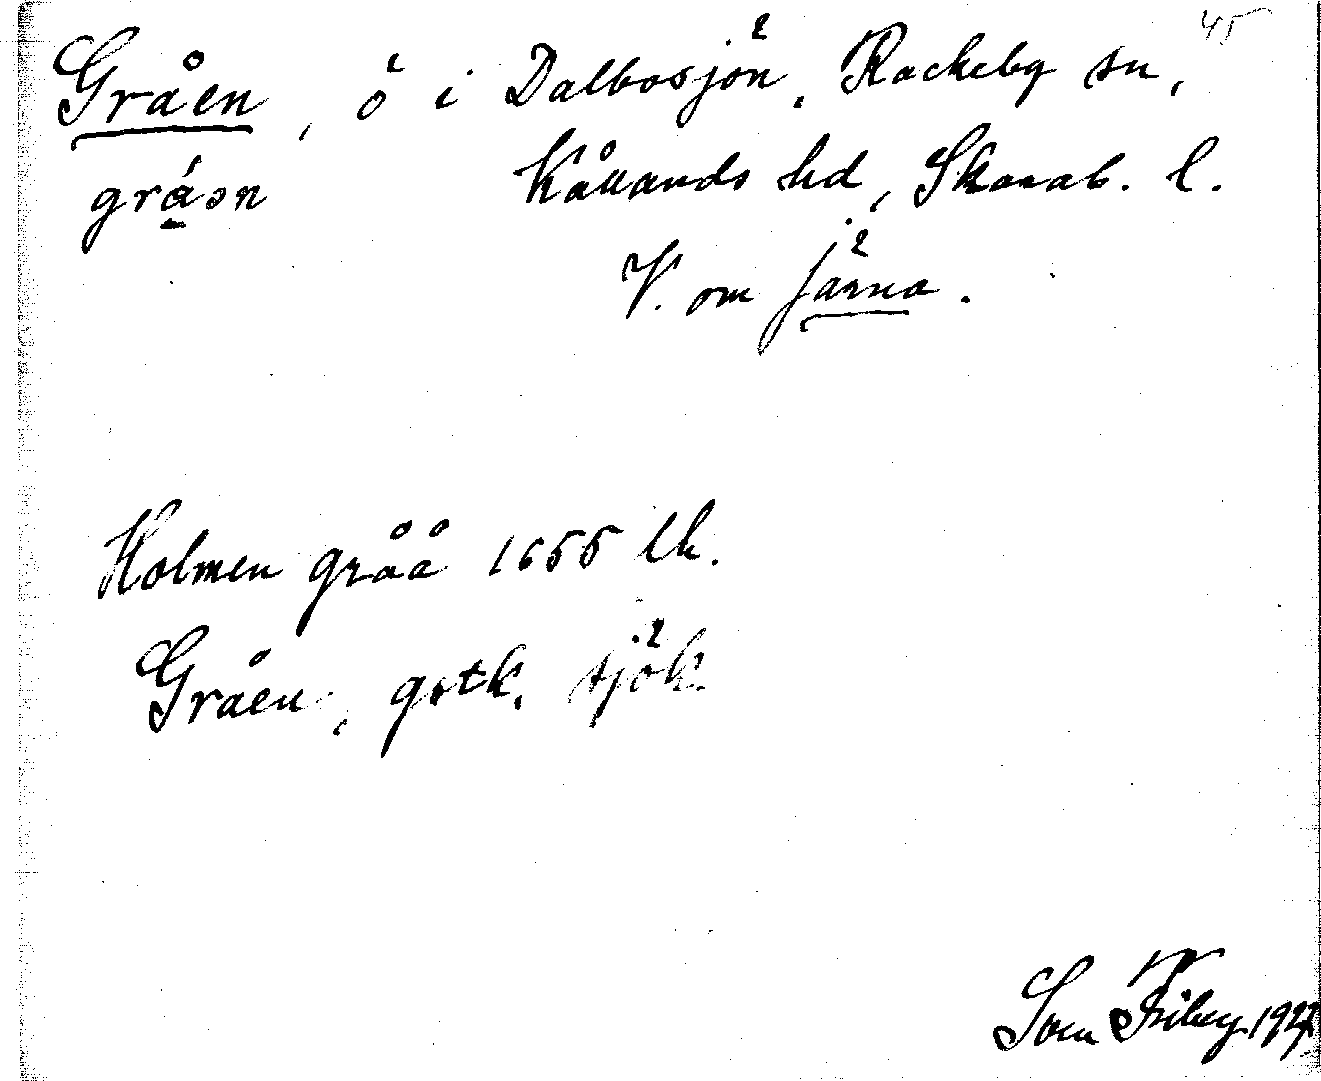 45
Gråen, ö i Dalbosjön, Rackeby sn,
gråən Kållands hd, Skarab. l.
V. om Järna.
Holmen gråå 1655 lk.
Gråen, gstk, sjök.
Som Friberg 1927